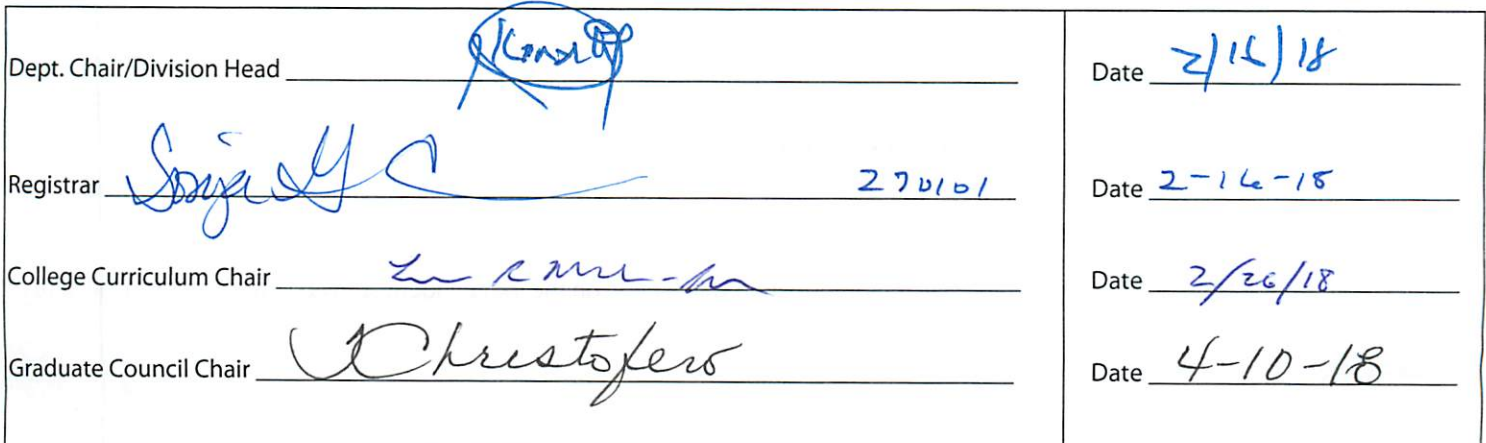 Dept. Chair/Division Head Date 2/16/18
Registrar Sonja G C 270101 Date 2-16-18
College Curriculum Chair Date 2/26/18
Graduate Council Chair Christofero Date 4-10-18